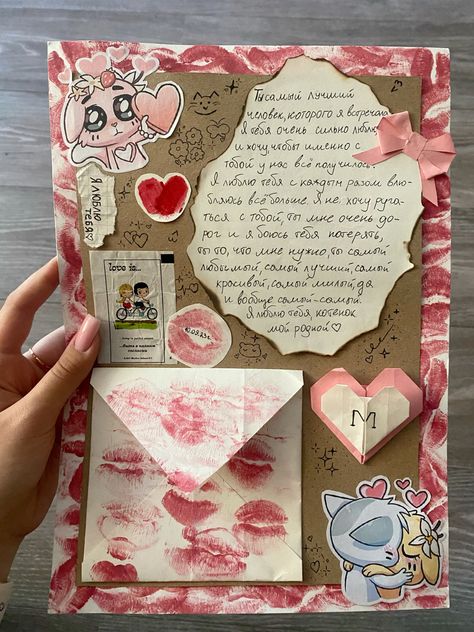 Ты самый лучший
человек, которого я встречала
Я тебя очень сильно люблю
и хочу, чтобы именно с
тобой у нас всё получилось.
Я люблю тебя с каждым разом влю-
бляюсь всё больше. Я не хочу руга-
ться с тобой, ты мне очень до-
рог и я боюсь тебя потерять,
ты то, что мне нужно, ты самый
любимый, самый лучший, самый
красивый, самый милый, да
и вообще самый-самый.
Я люблю тебя, котенок
мой родной
Я ЛЮБЛЮ
ТЕБЯ
love is...
M